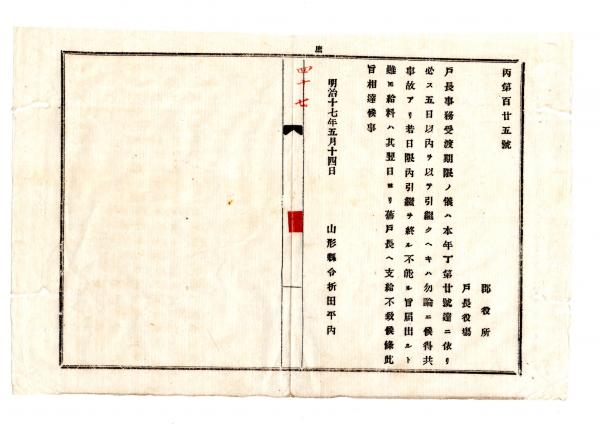 丙第百廿五號
郡役所
戸長役場
戸長事務受渡期限ノ儀ハ本年丁第廿號達ニ依リ
必ス五日以内ヲ以テ引繼クヘキハ勿論ニ候得共
事故アリ若日限内引繼ヲ終ル不能ル旨届出ルト
雖𪜈給料ハ其翌日ヨリ舊戸長ヘ支給不致候條此
旨相達候事
明治十七年五月十四日
山形縣令折田平内
四十七